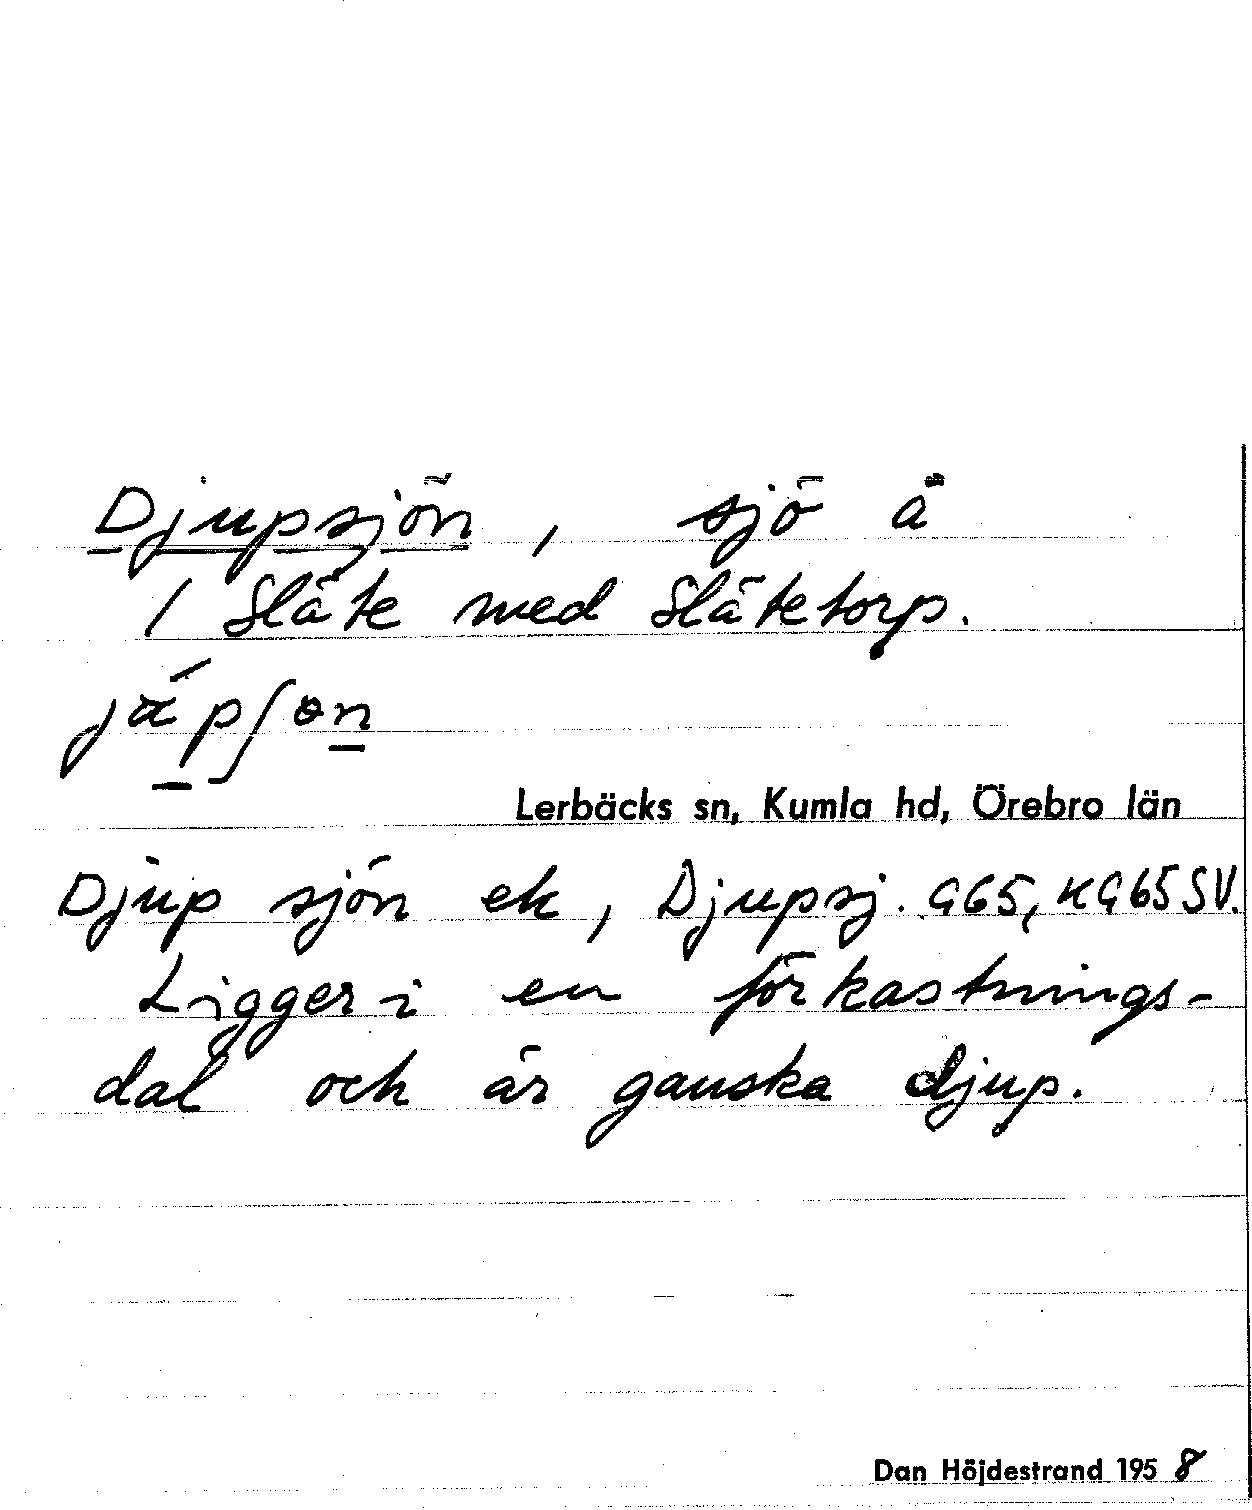 Djupsjön, sjö å
1 Släte med Slätetorp.
Lerbäcks sn, Kumla hd, Örebro län
Djup sjön ek, Djupsj. G65, KG65SV.
Ligger i en förkastnings-
dal och är ganska djup.
Dan Höjdestrand 1958